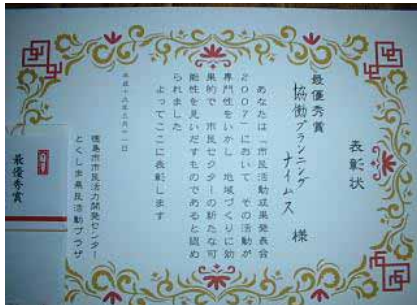 表彰状
最優秀賞
協働プランニング
ナイムス 様
あなたは「市民活動成果発表会
2007」において その活動が
専門性をいかし 地域づくりに効
果的で 市民セクターの新たな可
能性を見いだすものであると認め
られました
よってここに表彰します
平成十九年三月十一日
徳島市市民活力開発センター
とくしま県民活動プラザ
最優秀賞